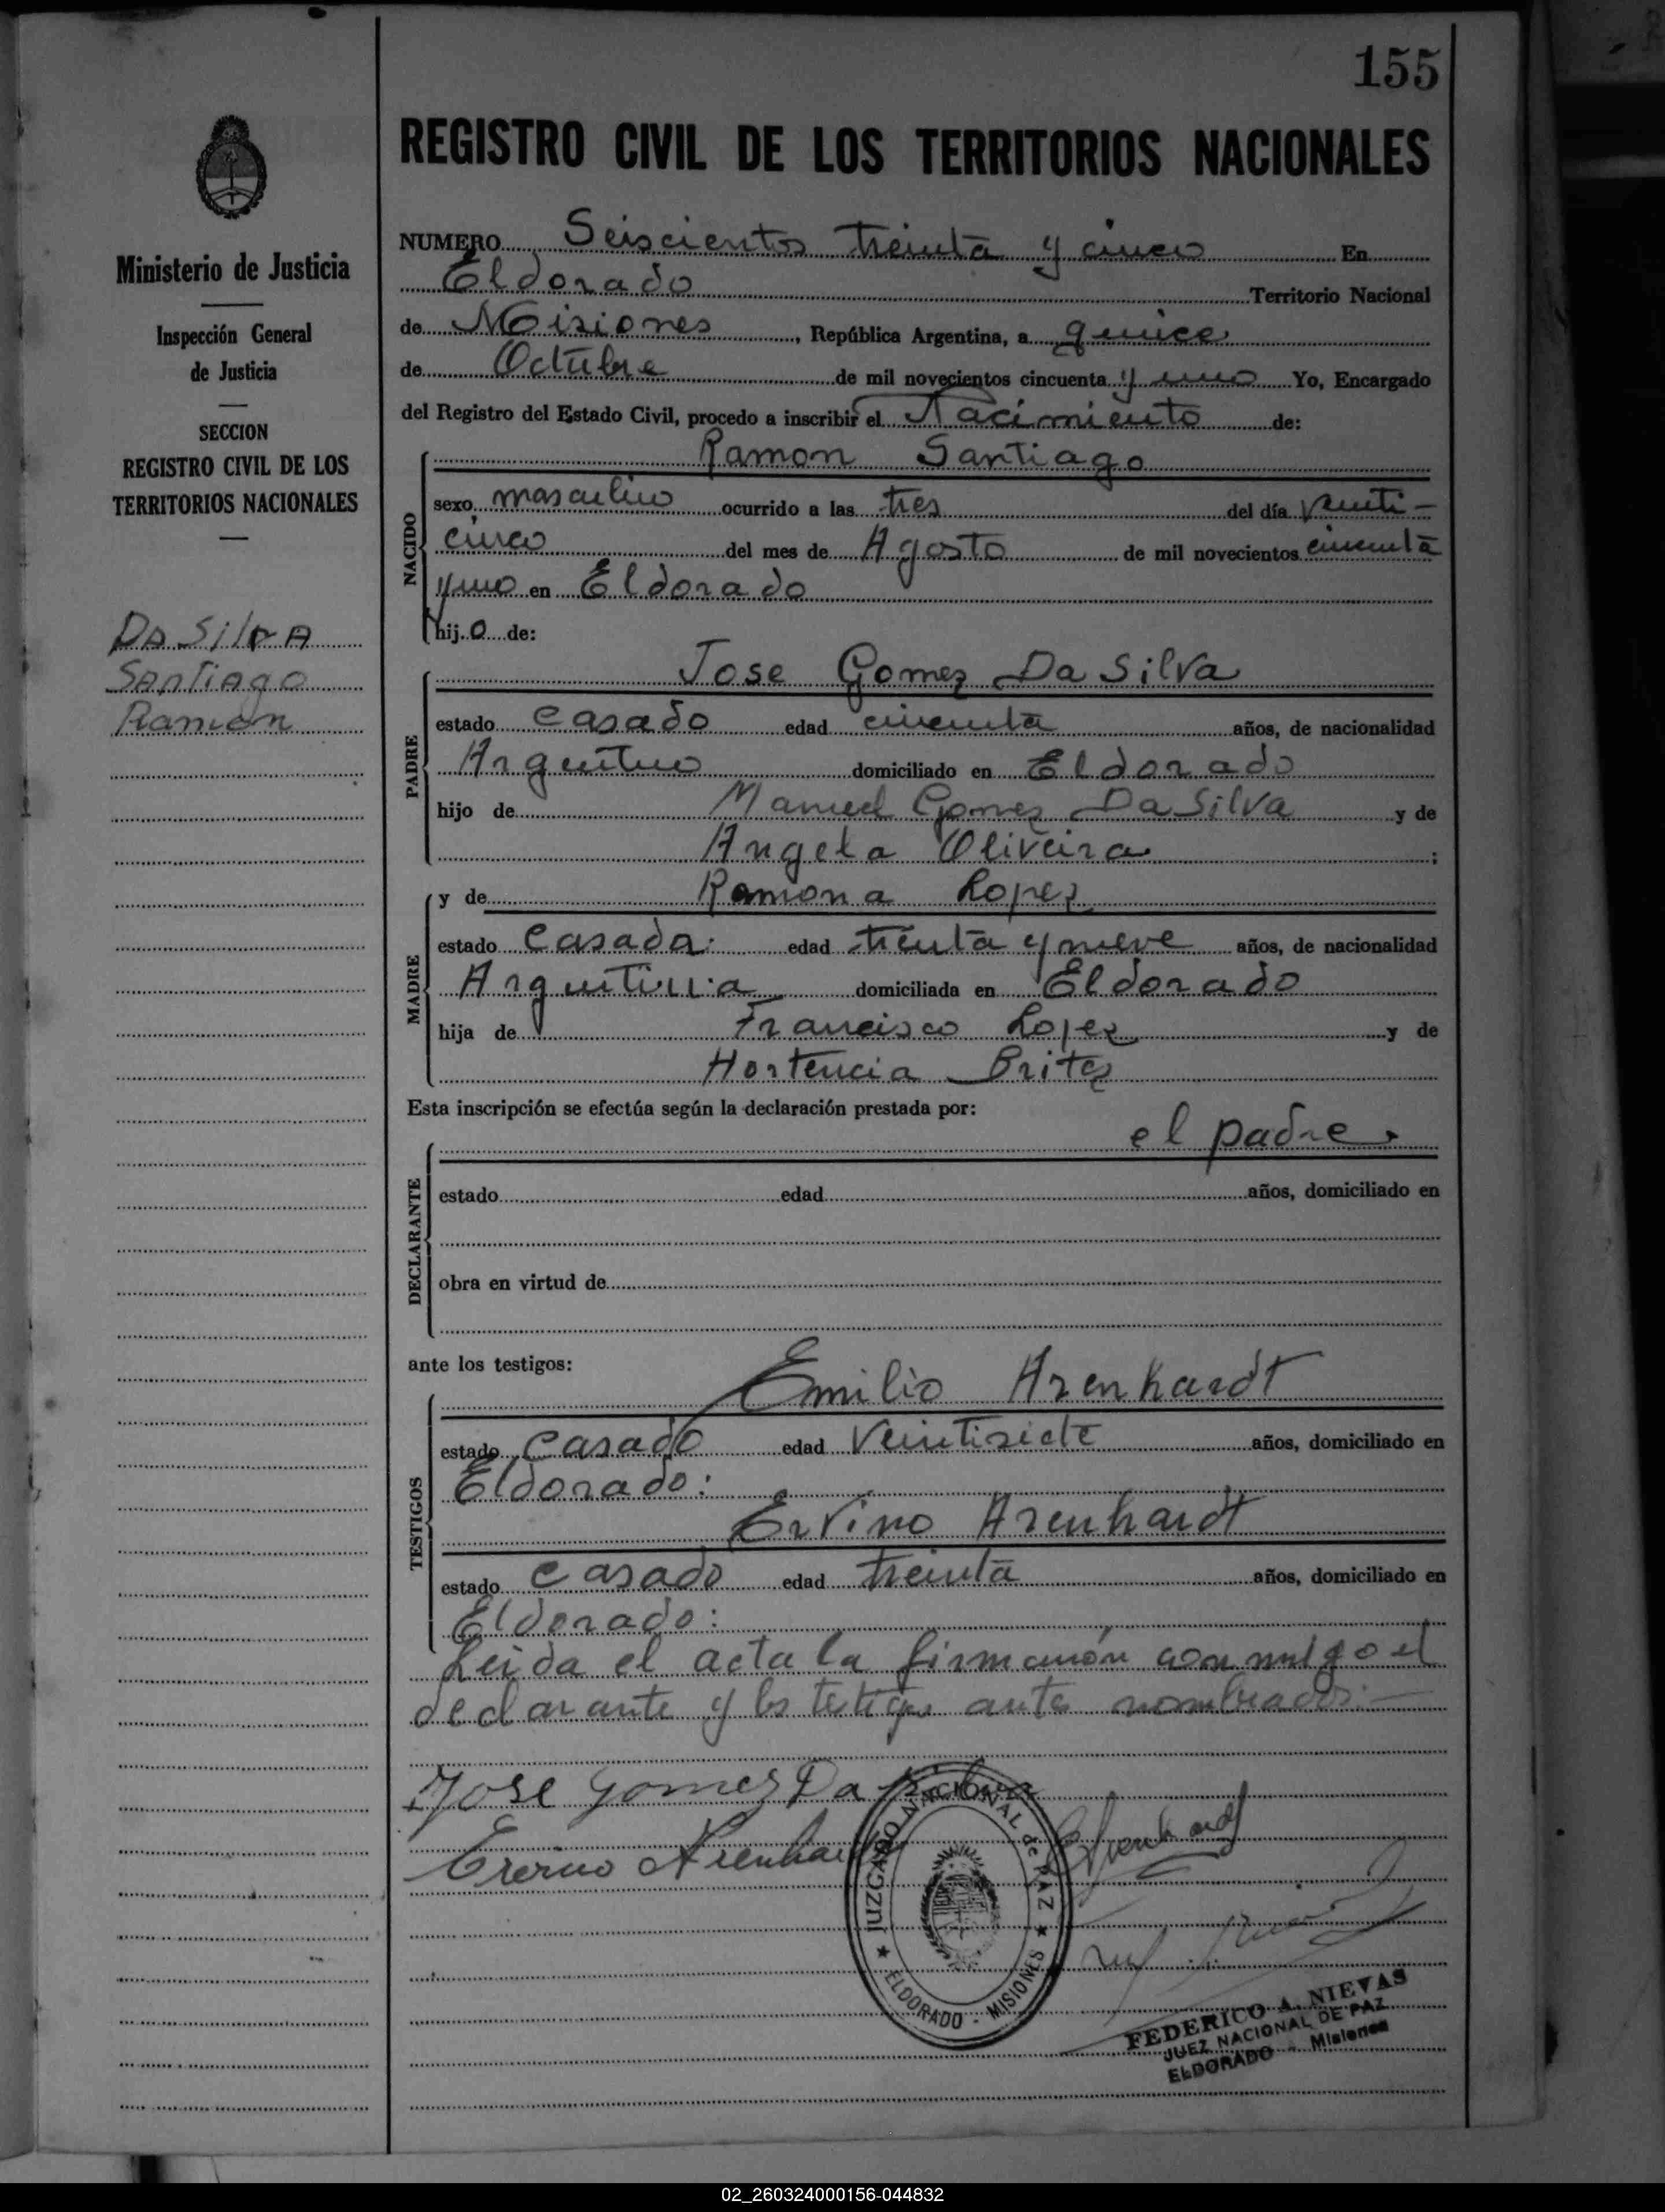 155
REGISTRO CIVIL DE LOS TERRITORIOS NACIONALES
Ministerio de Justicia
Inspección General
de Justicia
SECCION
REGISTRO CIVIL DE LOS
TERRITORIOS NACIONALES
Da Silva
Santiago
Ramón
NUMERO Seiscientos treinta y cinco En
Eldorado Territorio Nacional
de Misiones, República Argentina, a quince
de Octubre de mil novecientos cincuenta y uno Yo, Encargado
del Registro del Estado Civil, procedo a inscribir el Nacimiento de:
NACIDO
Ramon Santiago
sexo masculino ocurrido a las tres del día veinti-
cinco del mes de Agosto de mil novecientos cincuenta
y uno en Eldorado
hijo de:
PADRE
Jose Gomez Da Silva
estado casado edad cincuenta años, de nacionalidad
Argentino domiciliado en Eldorado
hijo de Manuel Gomez Da Silva y de
Angela Oliveira;
MADRE
y de Ramona Lopez
estado casada. edad treinta y nueve años, de nacionalidad
Argentina domiciliada en Eldorado
hija de Francisco Lopez y de
Hortencia Britez
Esta inscripción se efectúa según la declaración prestada por:
DECLARANTE
el padre.
estado edad años, domiciliado en
obra en virtud de
ante los testigos:
TESTIGOS
Emilio Arenhardt
estado casado edad veintisiete años, domiciliado en
Eldorado:
Ervino Arenhardt
estado casado edad treinta años, domiciliado en
Eldorado:
Leida el acta la firmaron conmigo el
declarante y los testigos antes nombrados.-
Jose Gomez Da Silva
Ervino Arenhardt
EArenhardt
JUZGADO NACIONAL de PAZ
★ ELDORADO - MISIONES ★
FEDERICO A. NIEVAS
JUEZ NACIONAL DE PAZ
ELDORADO - Misiones
02_260324000156-044832